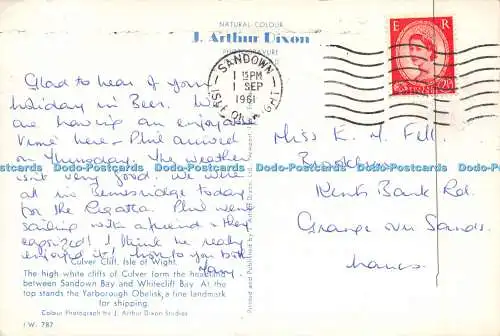 NATURAL COLOUR
J. Arthur Dixon
PHOTOGRAVURE
E R
SANDOWN
1 15 PM
1 SEP
1961
ISLE OF WIGHT
Glad to hear of your
holiday in Beer. We
are having an enjoyable
time here - Phil arrived
on Thursday. The weather
isn't very good. We were
at in Bembridge today
for the Regatta. Phil went
sailing with a friend & they
capsized! I think he really
enjoyed it! Love to you both
Mary.
Miss K. M. Fell
Kents Bank Rd.
Grange over Sands.
Lancs.
Dodo-Postcards Dodo-Postcards Dodo-Postcards Dodo-Postcards Dodo-Postcards Dodo-Postcards
Culver Cliff, Isle of Wight.
The high white cliffs of Culver form the headland
between Sandown Bay and Whitecliff Bay. At the
top stands the Yarborough Obelisk, a fine landmark
for shipping.
Colour Photograph by J. Arthur Dixon Studios
I.W. 787